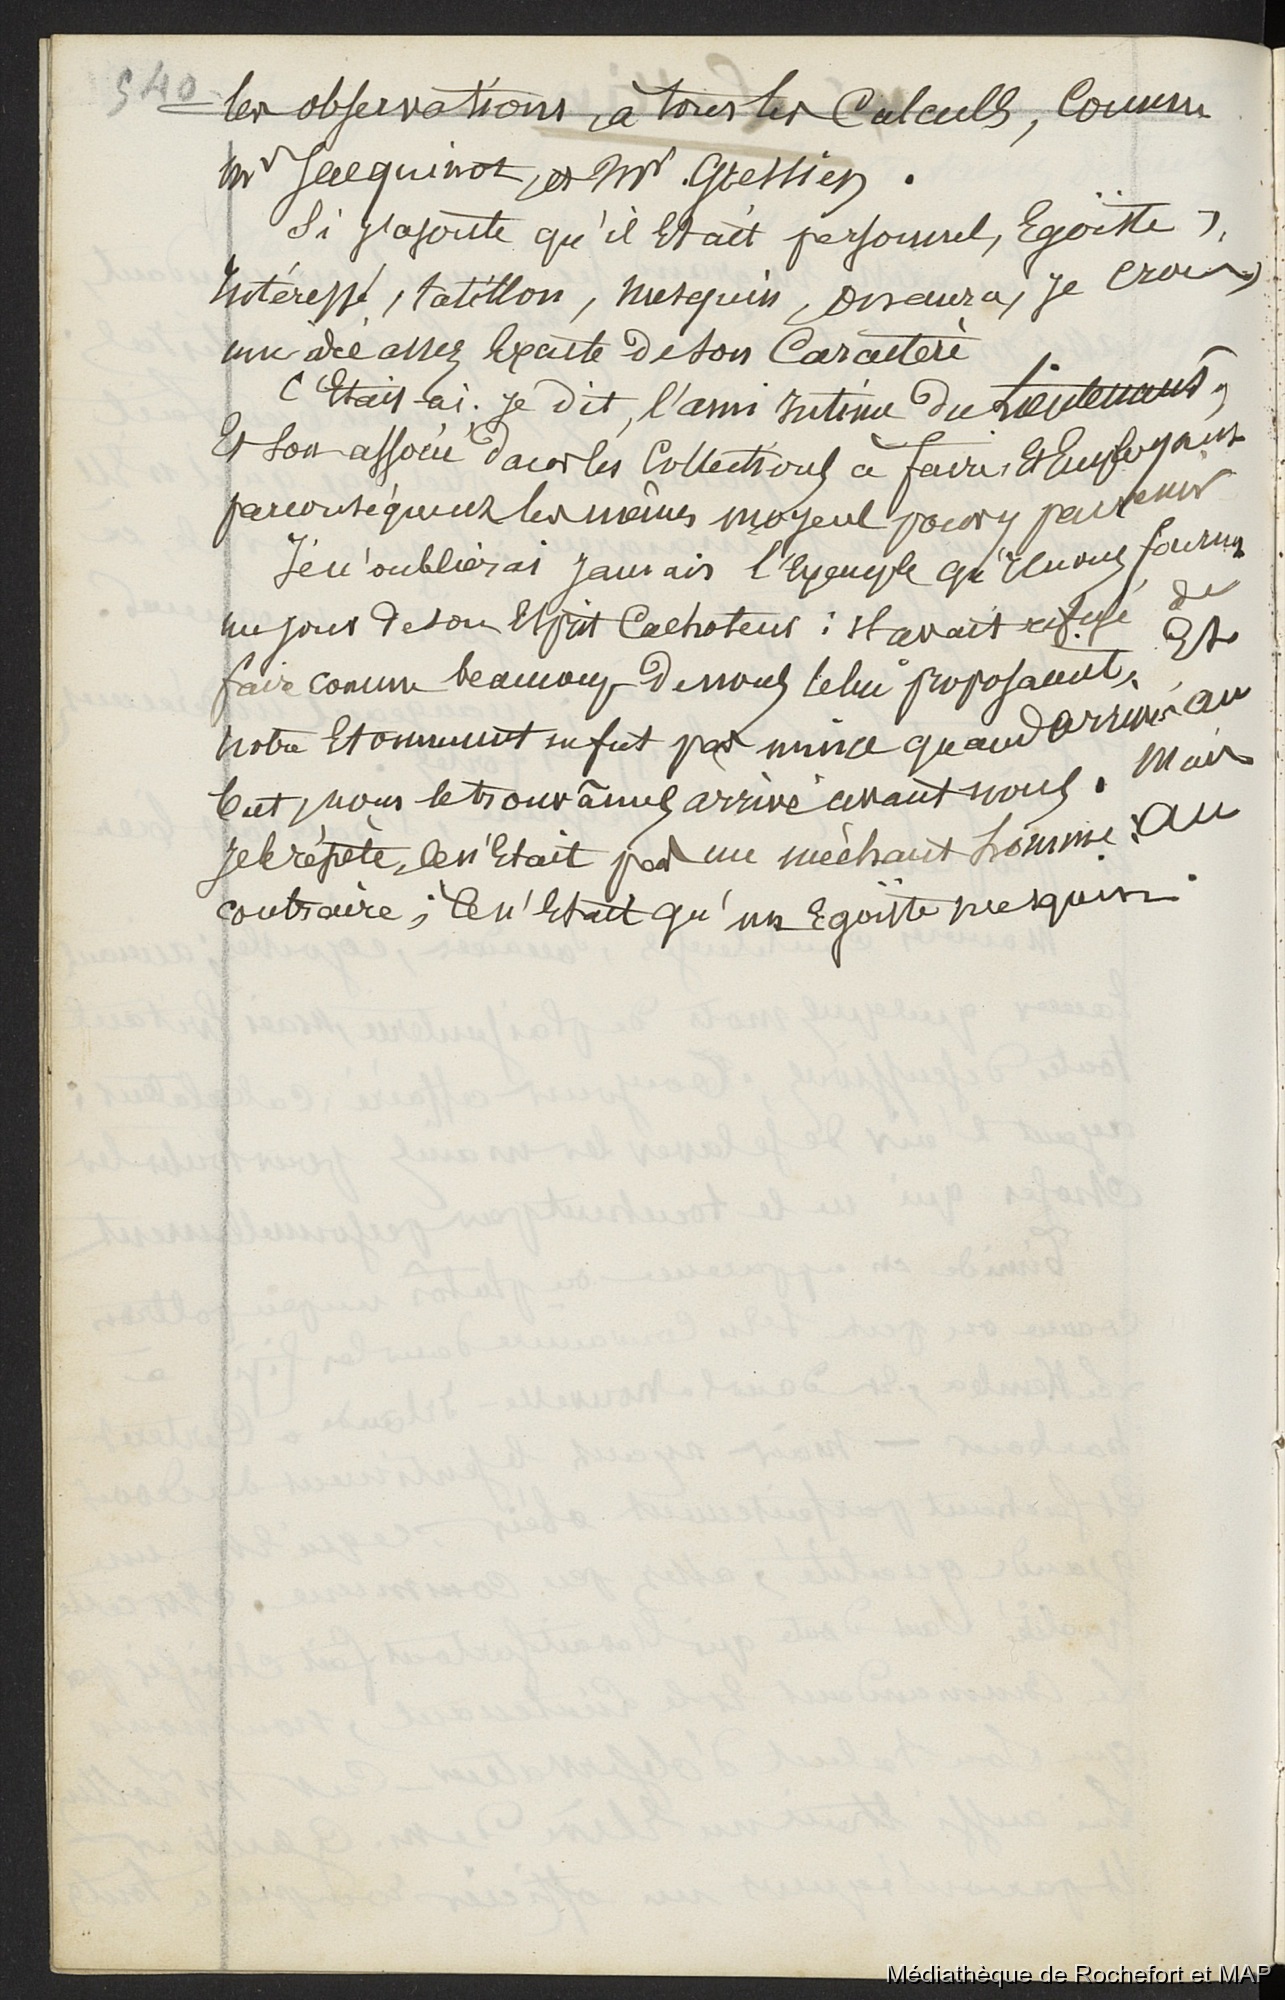 540
les observations, à tous les Calculs, Comme
Mr Jacquinot, et Mr. Gressien.
Si j'ajoute qu'il Etait personnel, Egoïste,
Intéressé, tatillon, mesquin, on aura, je crois,
une idée assez Exacte de son Caractère
C'Etait ai. je dit, l'ami intime du Lieutenant,
Et Son associé dans les Collections à faire, Et Employant
par conséquent les mêmes moyens pour y parvenir
Je n'oublierai jamais l'Exemple qu'Il nous fournit
un jour de son Esprit Cachoteur : il avait refusé de
faire comme beaucoup de nous le lui proposaient, Et
notre Etonnement ne fut pas mince quand arrivés au
but, nous le trouvâmes arrivé avant nous. Mais
je le répète, ce n'Etait pas un méchant homme, au
contraire ; Ce n'Etait qu'un Egoïste mesquin.
Médiathèque de Rochefort et MAP